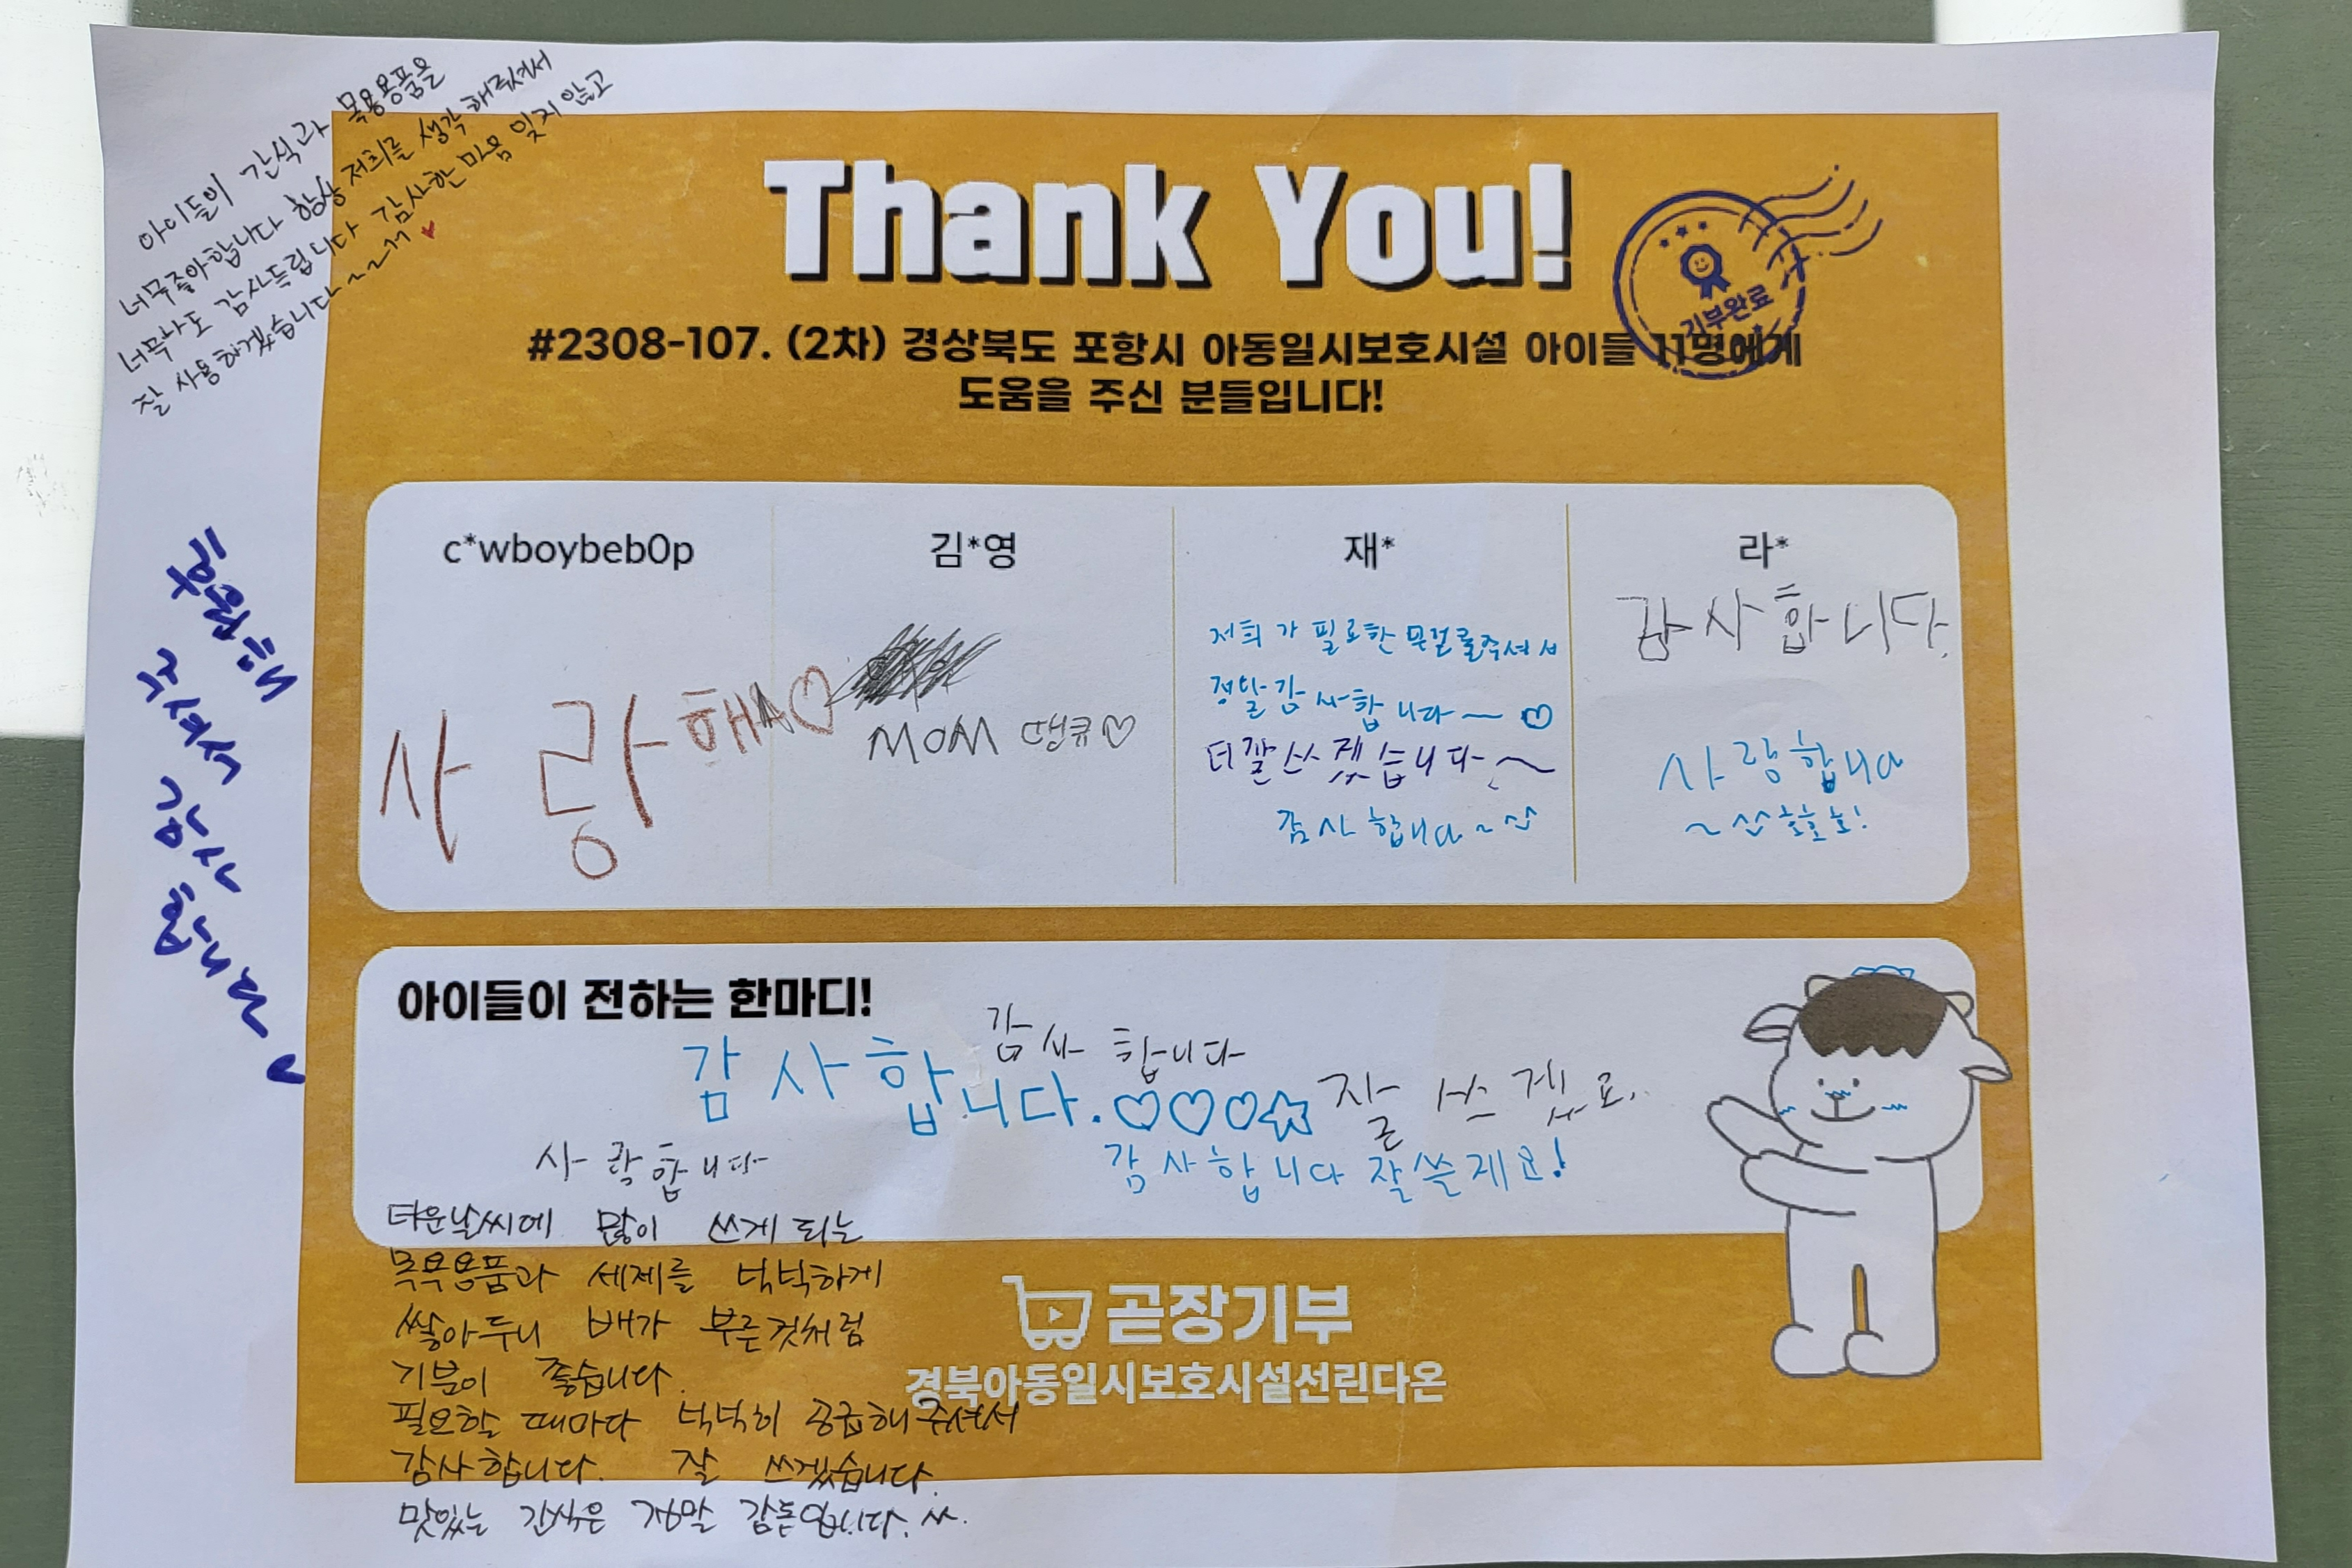 아이들이 간식과 목용용품을
너무좋아합니다 항상 저희를 생각해주셔서
너무나도 감사드립니다 감사한 마음 잊지 않고
잘 사용하겠습니다~~ㄲㄲ ♥
Thank You!
기부완료
#2308-107. (2차) 경상북도 포항시 아동일시보호시설 아이들 11명에게
도움을 주신 분들입니다!
c*wboybeb0p
김*영
재*
라*
후원해
주셔서
감사
합니다
♥
사랑해♡
MOM 땡큐♡
저희가 필요한 물건을주셔서
정말감사합니다~ ♡
더잘쓰겠습니다~
감사합니다~^^
감사합니다.
사랑합니다
~^^ 호호호!
아이들이 전하는 한마디!
감사합니다
감사합니다.♡♡♡☆
잘 쓰겠요.
사랑합니다
감사합니다 잘쓸게요!
더운날씨에 많이 쓰게 되는
목욕용품과 세제를 넉넉하게
쌓아두니 배가 부른것처럼
기분이 좋습니다.
필요할 때마다 넉넉히 공급해주셔서
감사합니다. 잘 쓰겠습니다.
맛있는 간식은 정말 감동입니다. ^^.
곧장기부
경북아동일시보호시설선린다온